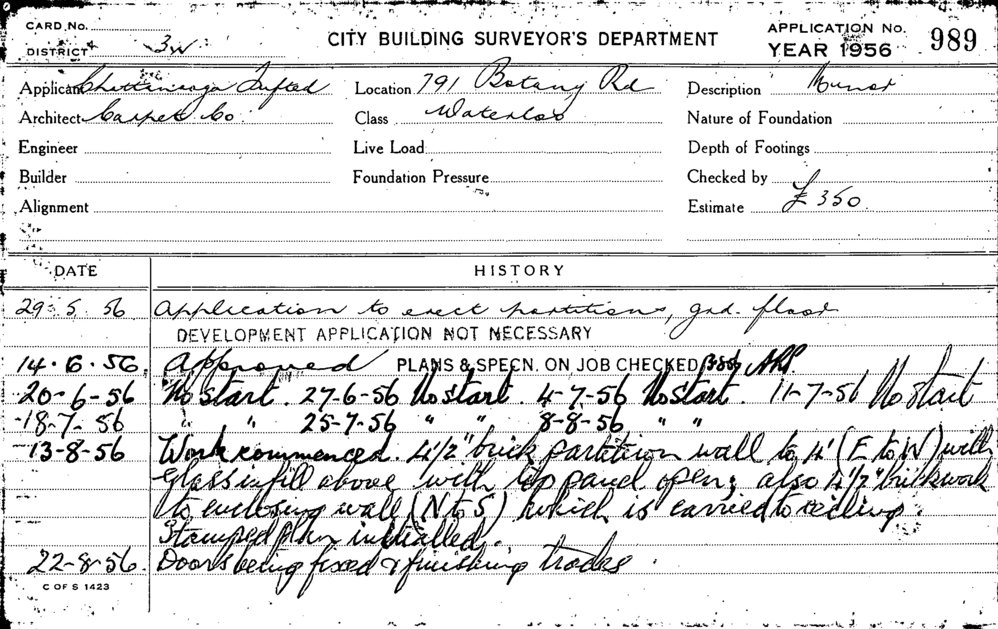 CARD No.
DISTRICT 3W
CITY BUILDING SURVEYOR'S DEPARTMENT
APPLICATION No.
YEAR 1956
989
Applicant Chattanooga Tufted
Location 791 Botany Rd
Description Minor
Architect Carpet Co
Class Waterloo
Nature of Foundation
Engineer
Live Load
Depth of Footings
Builder
Foundation Pressure
Checked by
Alignment
Estimate £350
DATE
HISTORY
29.5.56 Application to erect partitions, grd. floor
DEVELOPMENT APPLICATION NOT NECESSARY
14.6.56. Approved PLANS & SPECN. ON JOB CHECKED
20-6-56 No Start. 27-6-56 No start. 4-7-56 No start. 11-7-56 No Start
18-7-56 " " 25-7-56 " " 8-8-56 " "
13-8-56 Work commenced. 4½" brick partition wall to 4' (E to W) with
Glass infill above with top panel open; also 4½" brickwork
to enclosing wall (N to S) which is carried to ceiling.
Stamped plan initialled.
22-8-56. Doors being fixed & finishing trades.
C OF S 1423